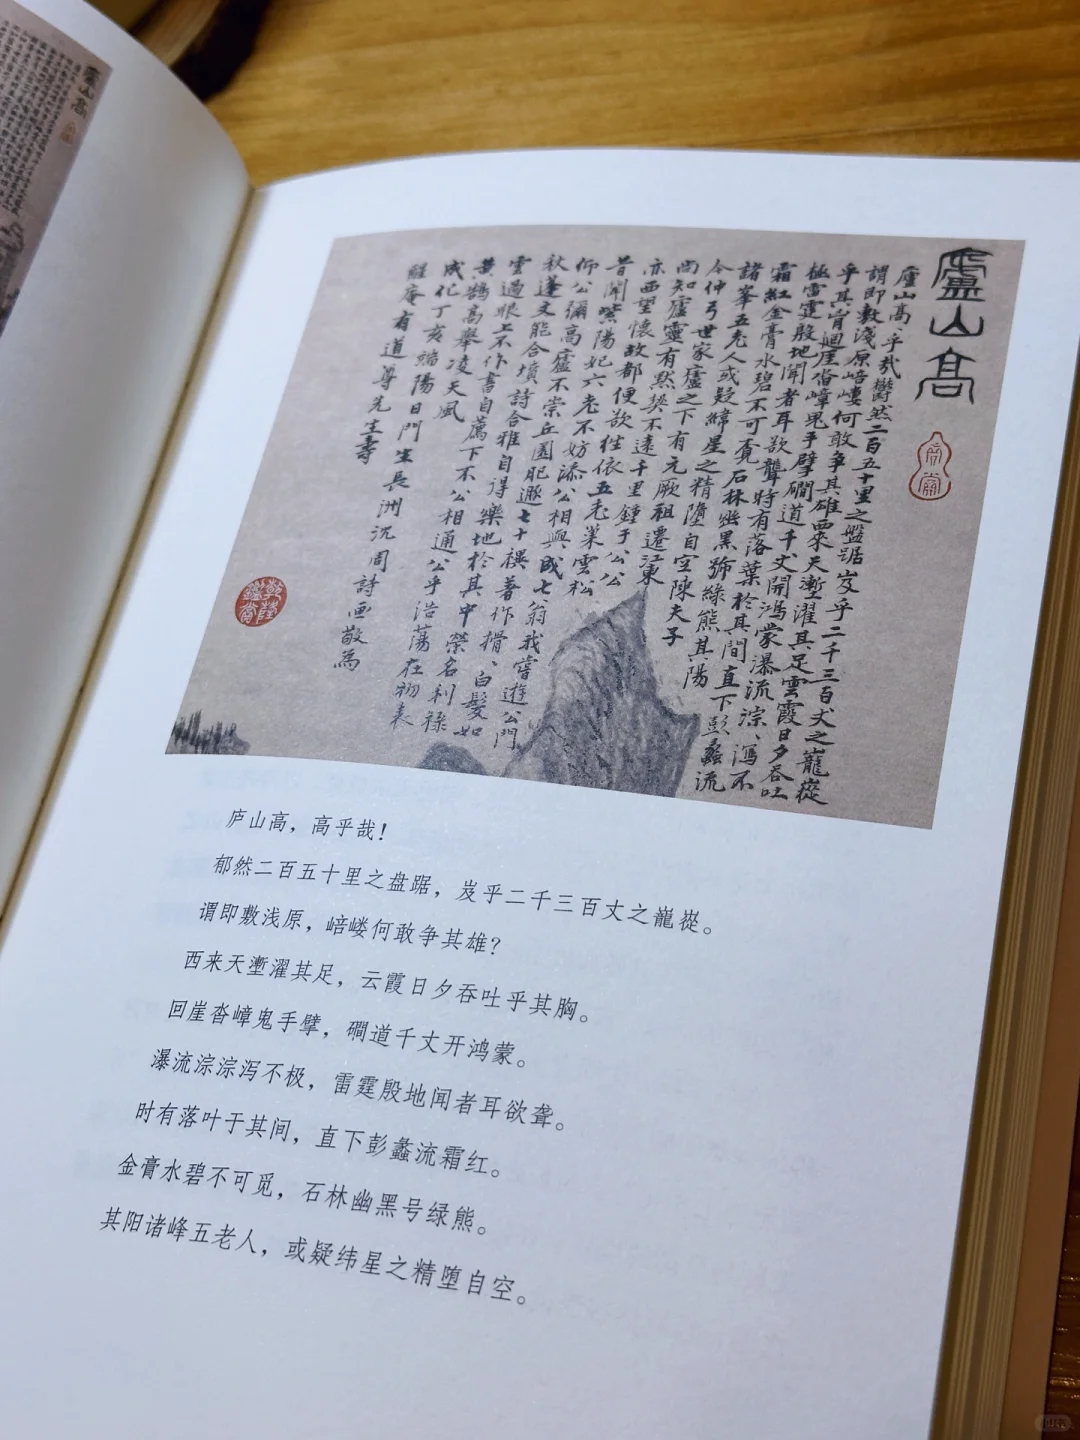 廬山高
廬山高、乎哉鬱然二百五十里之盤踞岌乎二千三百丈之巃嵸
謂即敷淺原培塿何敢爭其雄西來天塹濯其足雲霞日夕吞吐
乎其胷迴崖沓嶂鬼手擘磵道千丈開鴻蒙瀑流淙、瀉不
極雷霆殷地聞者耳欲聾時有落葉於其間直下彭蠡流
霜紅金膏水碧不可覔石林幽黑號綠熊其陽
諸峯五老人或疑緯星之精墮自空陳夫子
今仲弓世家廬之下有元厥祖遷江東
尚知廬靈有默契不遠千里鍾于公公
亦西望懷故都便欲往依五老巢雲松
昔聞紫陽妃六老不妨添公相與成七翁我嘗遊公門
仰公彌高廬不崇丘園肥遯七十禩著作搰、白髮如
秋蓬文能合墳詩合雅自得樂地於其中榮名利祿
雲過眼上不作書自薦下不公相通公乎浩蕩在物表
黄鵠高舉凌天風
成化丁亥端陽日門生長洲沈周詩画敬為
醒庵有道尊先生壽
乾隆鑑賞
庐山高，高乎哉！
郁然二百五十里之盘踞，岌乎二千三百丈之巃嵸。
谓即敷浅原，嵍嵝何敢争其雄？
西来天壍濯其足，云霞日夕吞吐乎其胸。
回崖沓嶂鬼手擘，磵道千丈开鸿蒙。
瀑流淙淙泻不极，雷霆殷地闻者耳欲聋。
时有落叶于其间，直下彭蠡流霜红。
金膏水碧不可觅，石林幽黑号绿熊。
其阳诸峰五老人，或疑纬星之精堕自空。